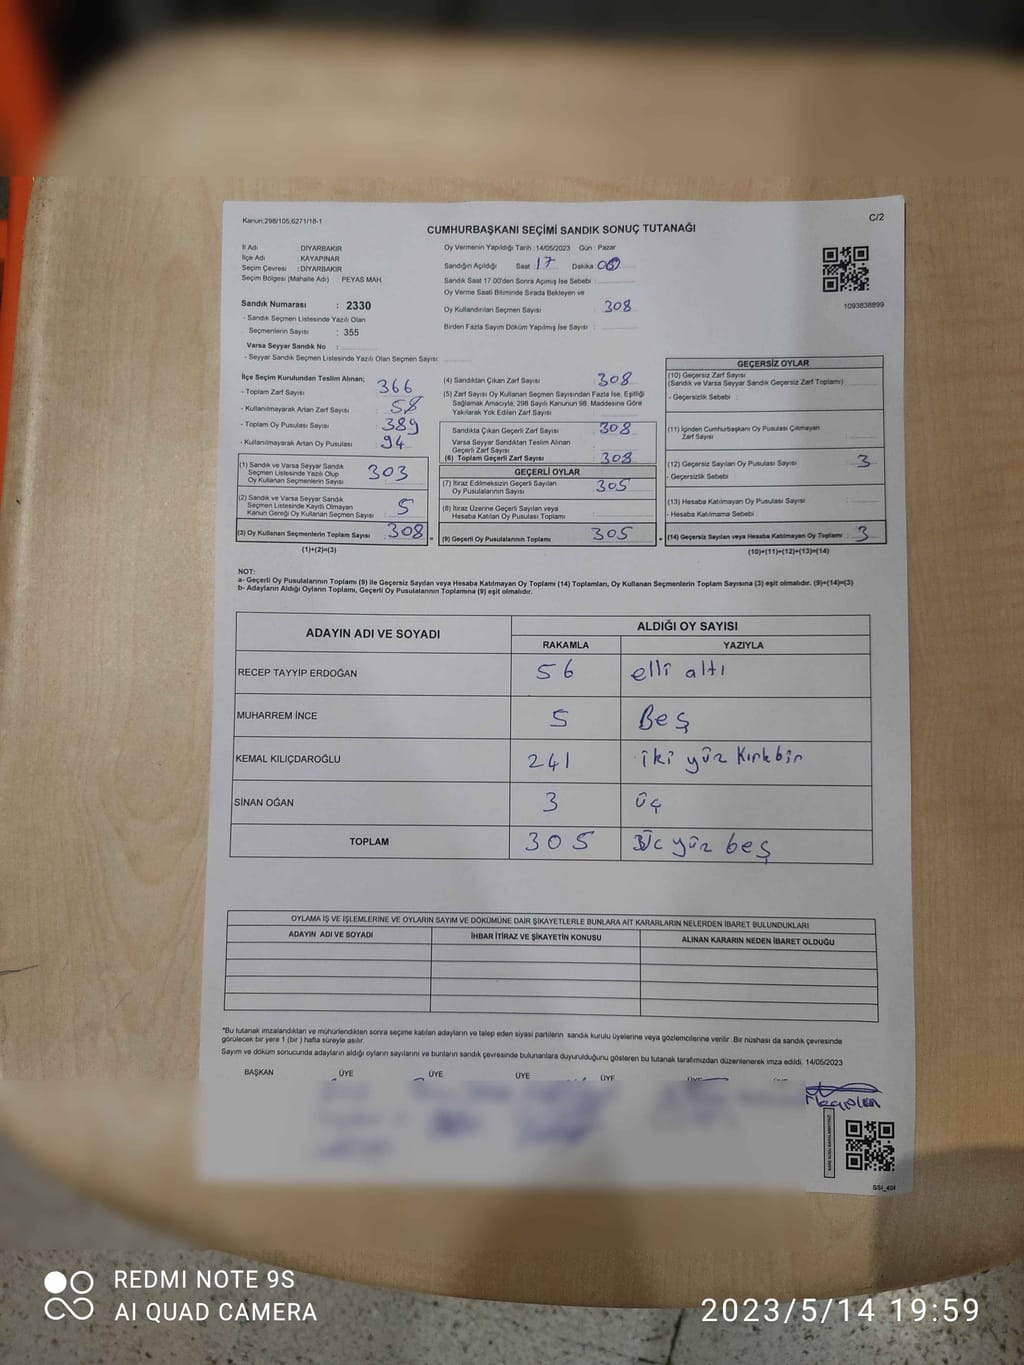 Kanun:298/105,6271/18-1
C/2
CUMHURBAŞKANI SEÇİMİ SANDIK SONUÇ TUTANAĞI
İl Adı : DİYARBAKIR
İlçe Adı : KAYAPINAR
Seçim Çevresi : DİYARBAKIR
Seçim Bölgesi (Mahalle Adı) : PEYAS MAH
Sandık Numarası : 2330
- Sandık Seçmen Listesinde Yazılı Olan
Seçmenlerin Sayısı : 355
Varsa Seyyar Sandık No :
- Seyyar Sandık Seçmen Listesinde Yazılı Olan Seçmen Sayısı :
Oy Vermenin Yapıldığı Tarih : 14/05/2023 Gün : Pazar
Sandığın Açıldığı Saat : 17 Dakika
Sandık Saat 17.00'den Sonra Açımış İse Sebebi :
Oy Verme Saati Bitiminde Sırada Bekleyen ve
Oy Kullandırılan Seçmen Sayısı : 308
Birden Fazla Sayım Döküm Yapılmış İse Sayısı :
1093838899
İlçe Seçim Kurulundan Teslim Alınan;
- Toplam Zarf Sayısı : 366
- Kullanılmayarak Artan Zarf Sayısı : 58
- Toplam Oy Pusulası Sayısı : 389
- Kullanılmayarak Artan Oy Pusulası : 94
(1) Sandık ve Varsa Seyyar Sandık
Seçmen Listesinde Yazılı Olup
Oy Kullanan Seçmenlerin Sayısı : 303
(2) Sandık ve Varsa Seyyar Sandık
Seçmen Listesinde Kayıtlı Olmayan
Kanun Gereği Oy Kullanan Seçmen Sayısı : 5
(3) Oy Kullanan Seçmenlerin Toplam Sayısı : 308
(1)+(2)=(3)
(4) Sandıktan Çıkan Zarf Sayısı : 308
(5) Zarf Sayısı Oy Kullanan Seçmen Sayısından Fazla İse, Eşitliği
Sağlamak Amacıyla, 298 Sayılı Kanunun 98. Maddesine Göre
Yakılarak Yok Edilen Zarf Sayısı :
Sandıkta Çıkan Geçerli Zarf Sayısı : 308
Varsa Seyyar Sandıktan Teslim Alınan
Geçerli Zarf Sayısı :
(6) Toplam Geçerli Zarf Sayısı : 308
GEÇERLİ OYLAR
(7) İtiraz Edilmeksizin Geçerli Sayılan
Oy Pusulalarının Sayısı : 305
(8) İtiraz Üzerine Geçerli Sayılan veya
Hesaba Katılan Oy Pusulası Toplamı :
(9) Geçerli Oy Pusulalarının Toplamı : 305
GEÇERSİZ OYLAR
(10) Geçersiz Zarf Sayısı
(Sandık ve Varsa Seyyar Sandık Geçersiz Zarf Toplamı) :
- Geçersizlik Sebebi :
(11) İçinden Cumhurbaşkanı Oy Pusulası Çıkmayan
Zarf Sayısı :
(12) Geçersiz Sayılan Oy Pusulası Sayısı : 3
- Geçersizlik Sebebi :
(13) Hesaba Katılmayan Oy Pusulası Sayısı :
- Hesaba Katılmama Sebebi :
(14) Geçersiz Sayılan veya Hesaba Katılmayan Oy Toplamı : 3
(10)+(11)+(12)+(13)=(14)
NOT:
a- Geçerli Oy Pusulalarının Toplamı (9) ile Geçersiz Sayılan veya Hesaba Katılmayan Oy Toplamı (14) Toplamları, Oy Kullanan Seçmenlerin Toplam Sayısına (3) eşit olmalıdır. (9)+(14)=(3)
b- Adayların Aldığı Oyların Toplamı, Geçerli Oy Pusulalarının Toplamına (9) eşit olmalıdır.
ADAYIN ADI VE SOYADI ALDIĞI OY SAYISI
RAKAMLA YAZIYLA
RECEP TAYYİP ERDOĞAN 56 elli altı
MUHARREM İNCE 5 Beş
KEMAL KILIÇDAROĞLU 241 iki yüz Kırkbir
SİNAN OĞAN 3 üç
TOPLAM 305 Üç yüz beş
OYLAMA İŞ VE İŞLEMLERİNE VE OYLARIN SAYIM VE DÖKÜMÜNE DAİR ŞİKAYETLERLE BUNLARA AİT KARARLARIN NELERDEN İBARET BULUNDUKLARI
ADAYIN ADI VE SOYADI İHBAR İTİRAZ VE ŞİKAYETİN KONUSU ALINAN KARARIN NEDEN İBARET OLDUĞU
"Bu tutanak imzalandıktan ve mühürlendikten sonra seçime katılan adayların ve talep eden siyasi partilerin sandık kurulu üyelerine veya gözlemcilerine verilir. Bir nüshası da sandık çevresinde
görülecek bir yere 1 (bir) hafta süreyle asılır.
Sayım ve döküm sonucunda adayların aldığı oyların sayılarını ve bunların sandık çevresinde bulunanlara duyurulduğunu gösteren bu tutanak tarafımızdan düzenlenerek imza edildi. 14/05/2023
BAŞKAN ÜYE ÜYE ÜYE ÜYE
SSI_404
REDMI NOTE 9S
AI QUAD CAMERA
2023/5/14 19:59